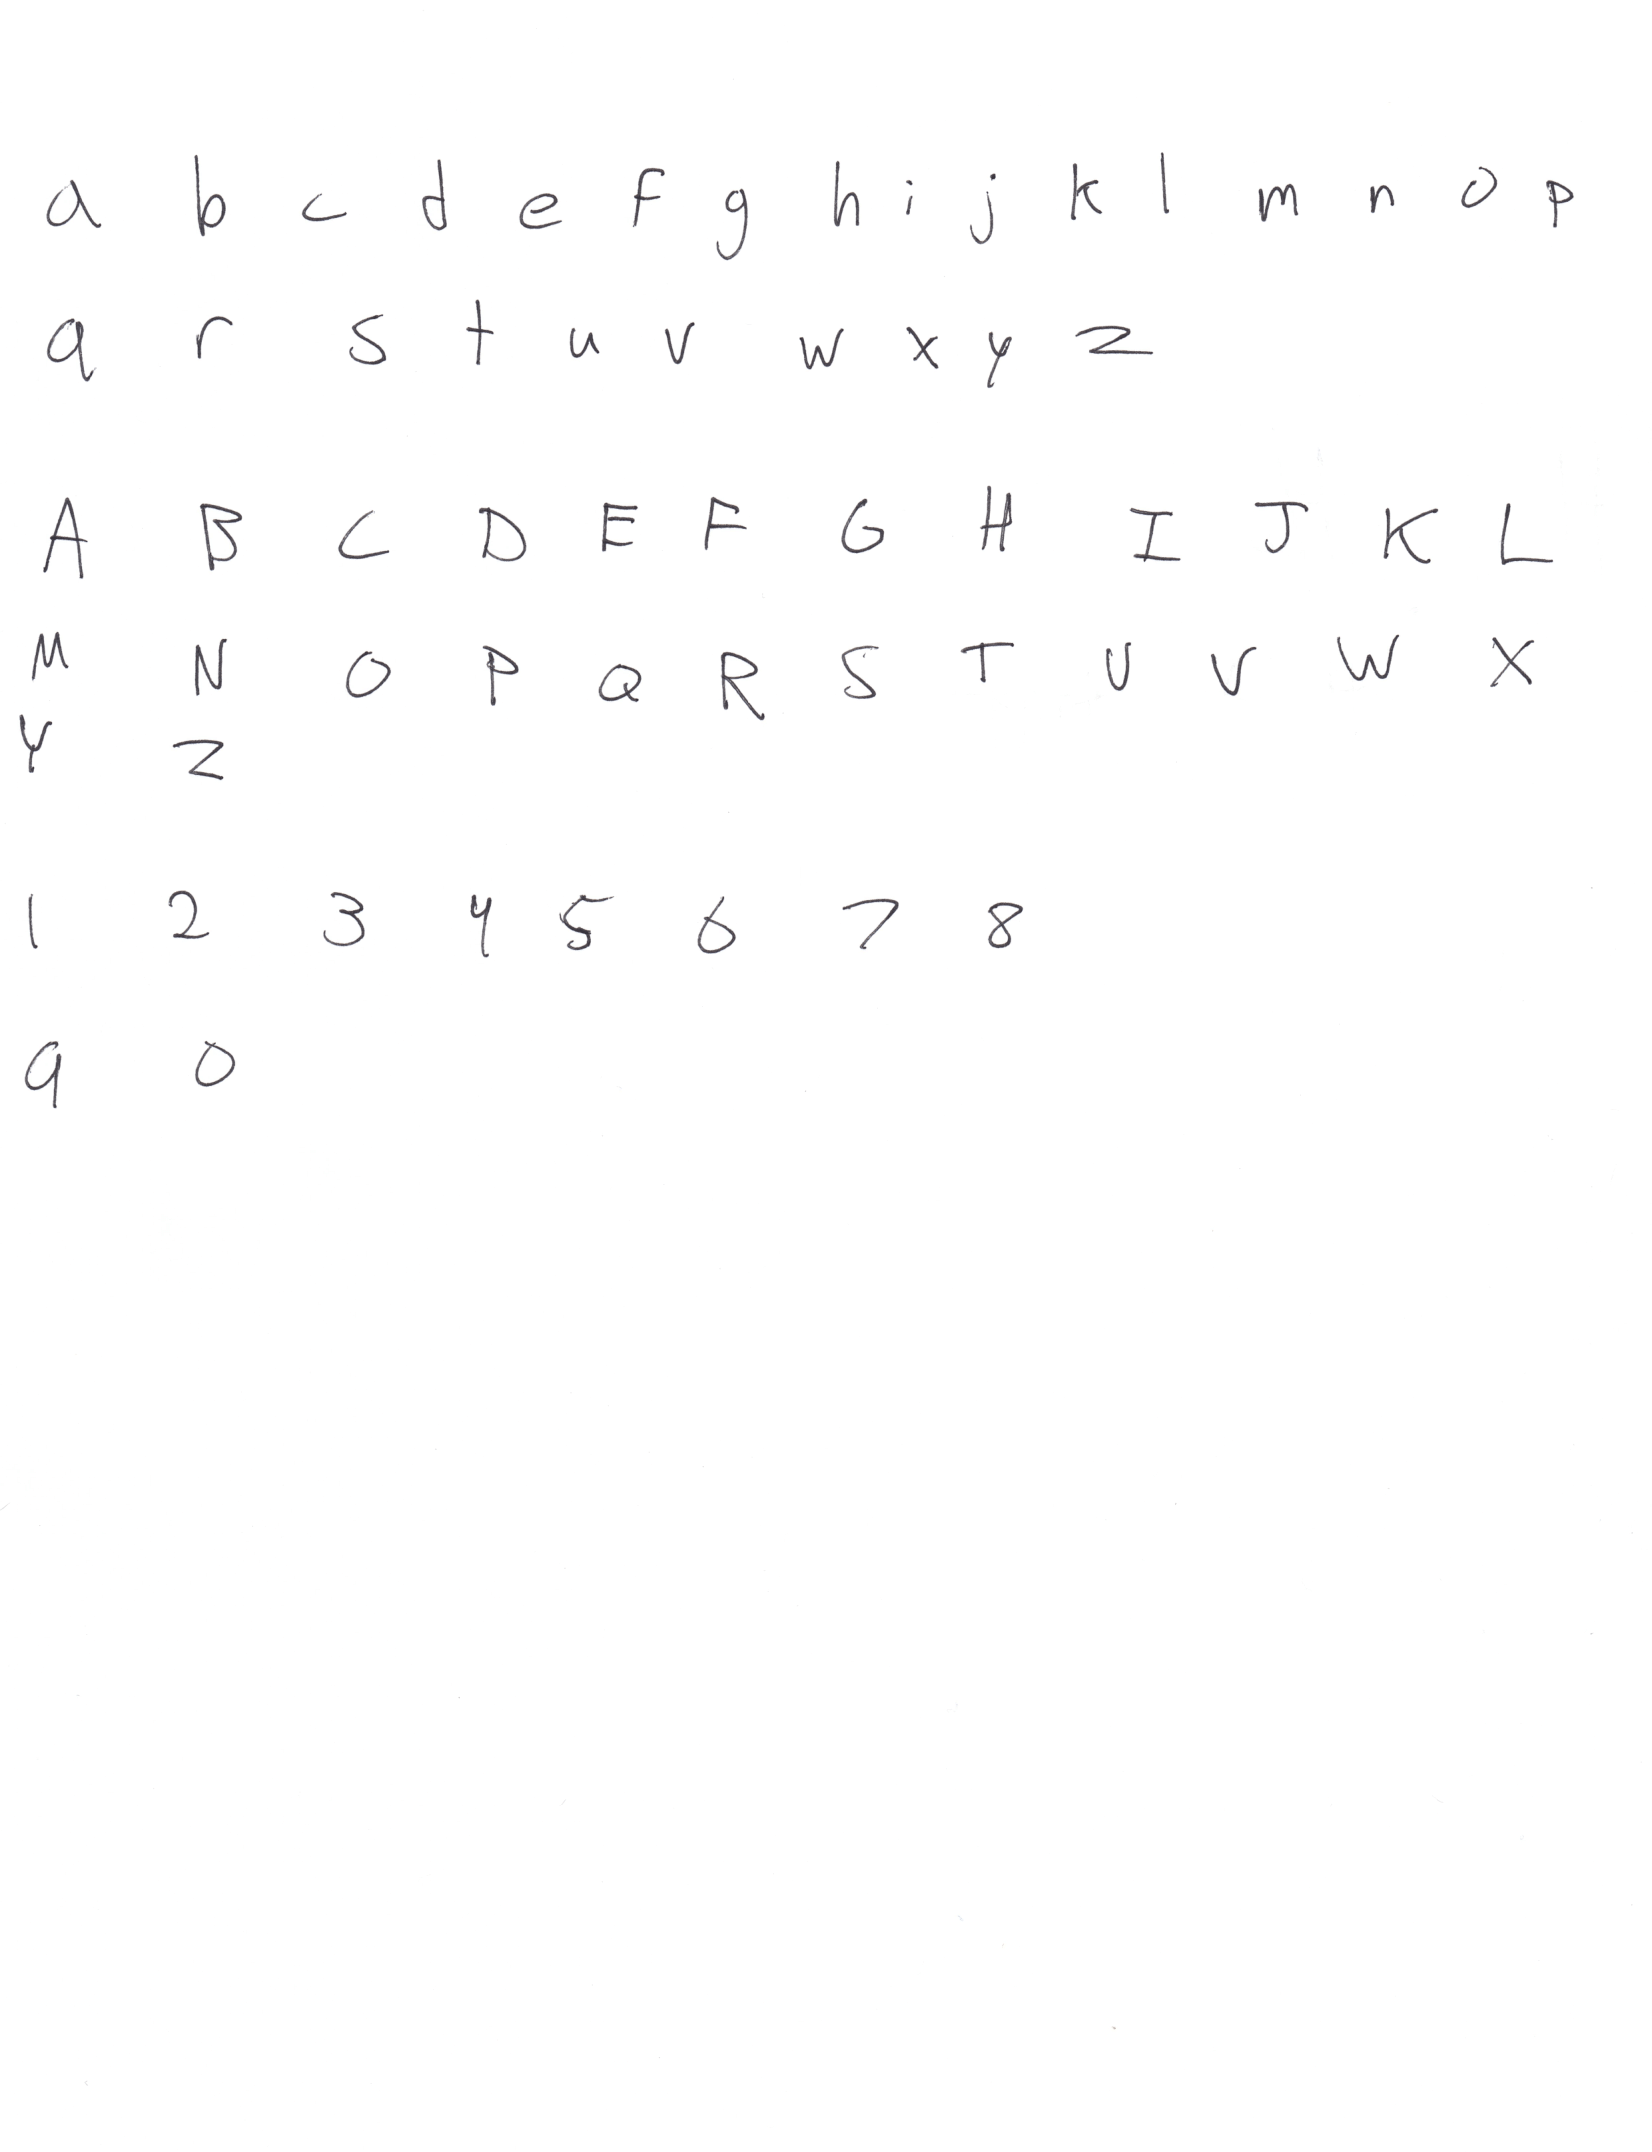 a b c d e f g h i j k l m n o p
q r s t u v w x y z
A B C D E F G H I J K L
M N O P Q R S T U V W X
Y Z
1 2 3 4 5 6 7 8
9 0